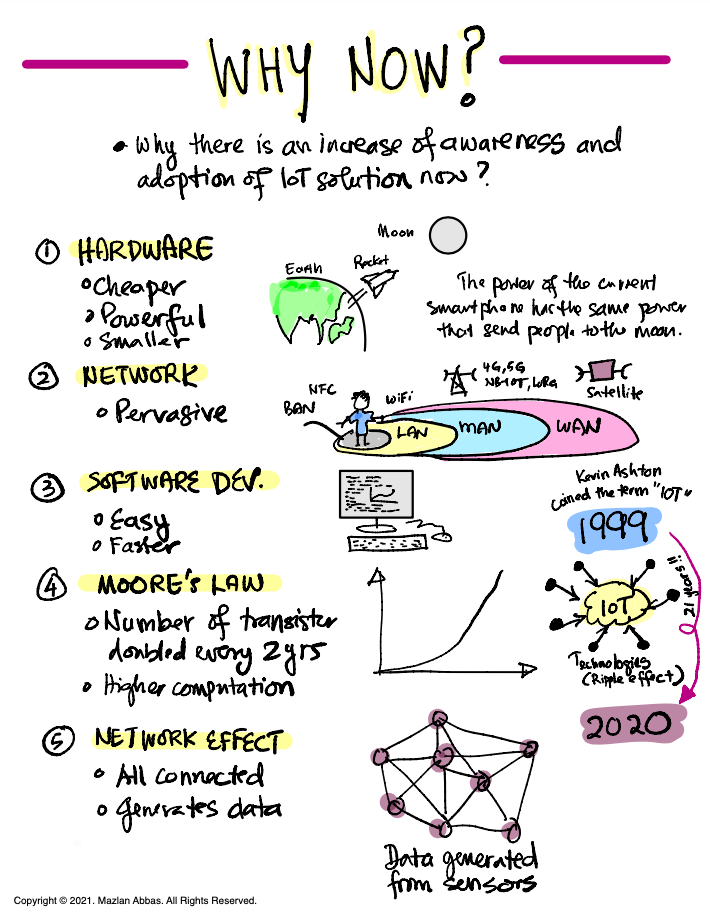 WHY NOW?
• Why there is an increase of awareness and
adoption of IoT solution now?
① HARDWARE
o Cheaper
o Powerful
o Smaller
Moon
Earth
Rocket
The power of the current
smartphone has the same power
that send people to the moon.
② NETWORK
o Pervasive
BAN
NFC
WiFi
4G, 5G
NB-IOT, LoRa
Satellite
LAN
MAN
WAN
③ SOFTWARE DEV.
o Easy
o Faster
Kevin Ashton
coined the term "IOT"
1999
④ MOORE's LAW
o Number of transister
doubled every 2 yrs
o Higher computation
IoT
21 years!!
Technologies
(Ripple effect)
2020
⑤ NETWORK EFFECT
o All connected
o Generates data
Data generated
from sensors
Copyright © 2021. Mazlan Abbas. All Rights Reserved.